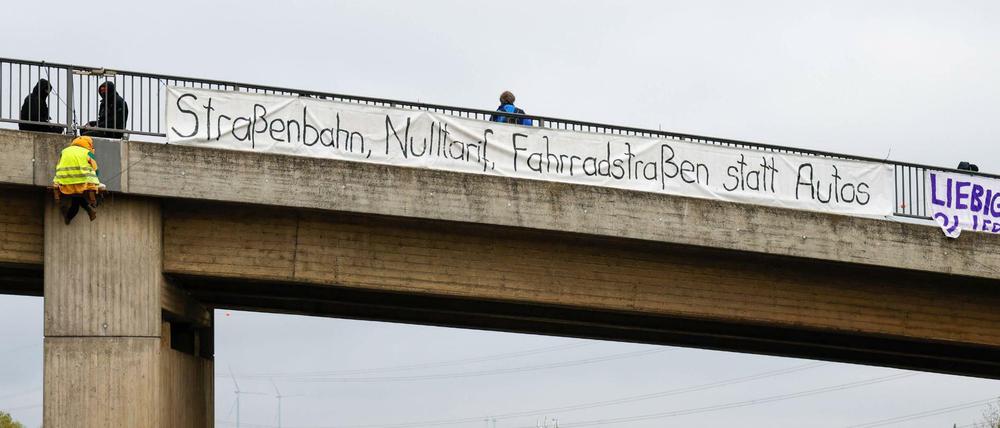 Straßenbahn, Nulltarif, Fahrradstraßen statt Autos
LIEBIG